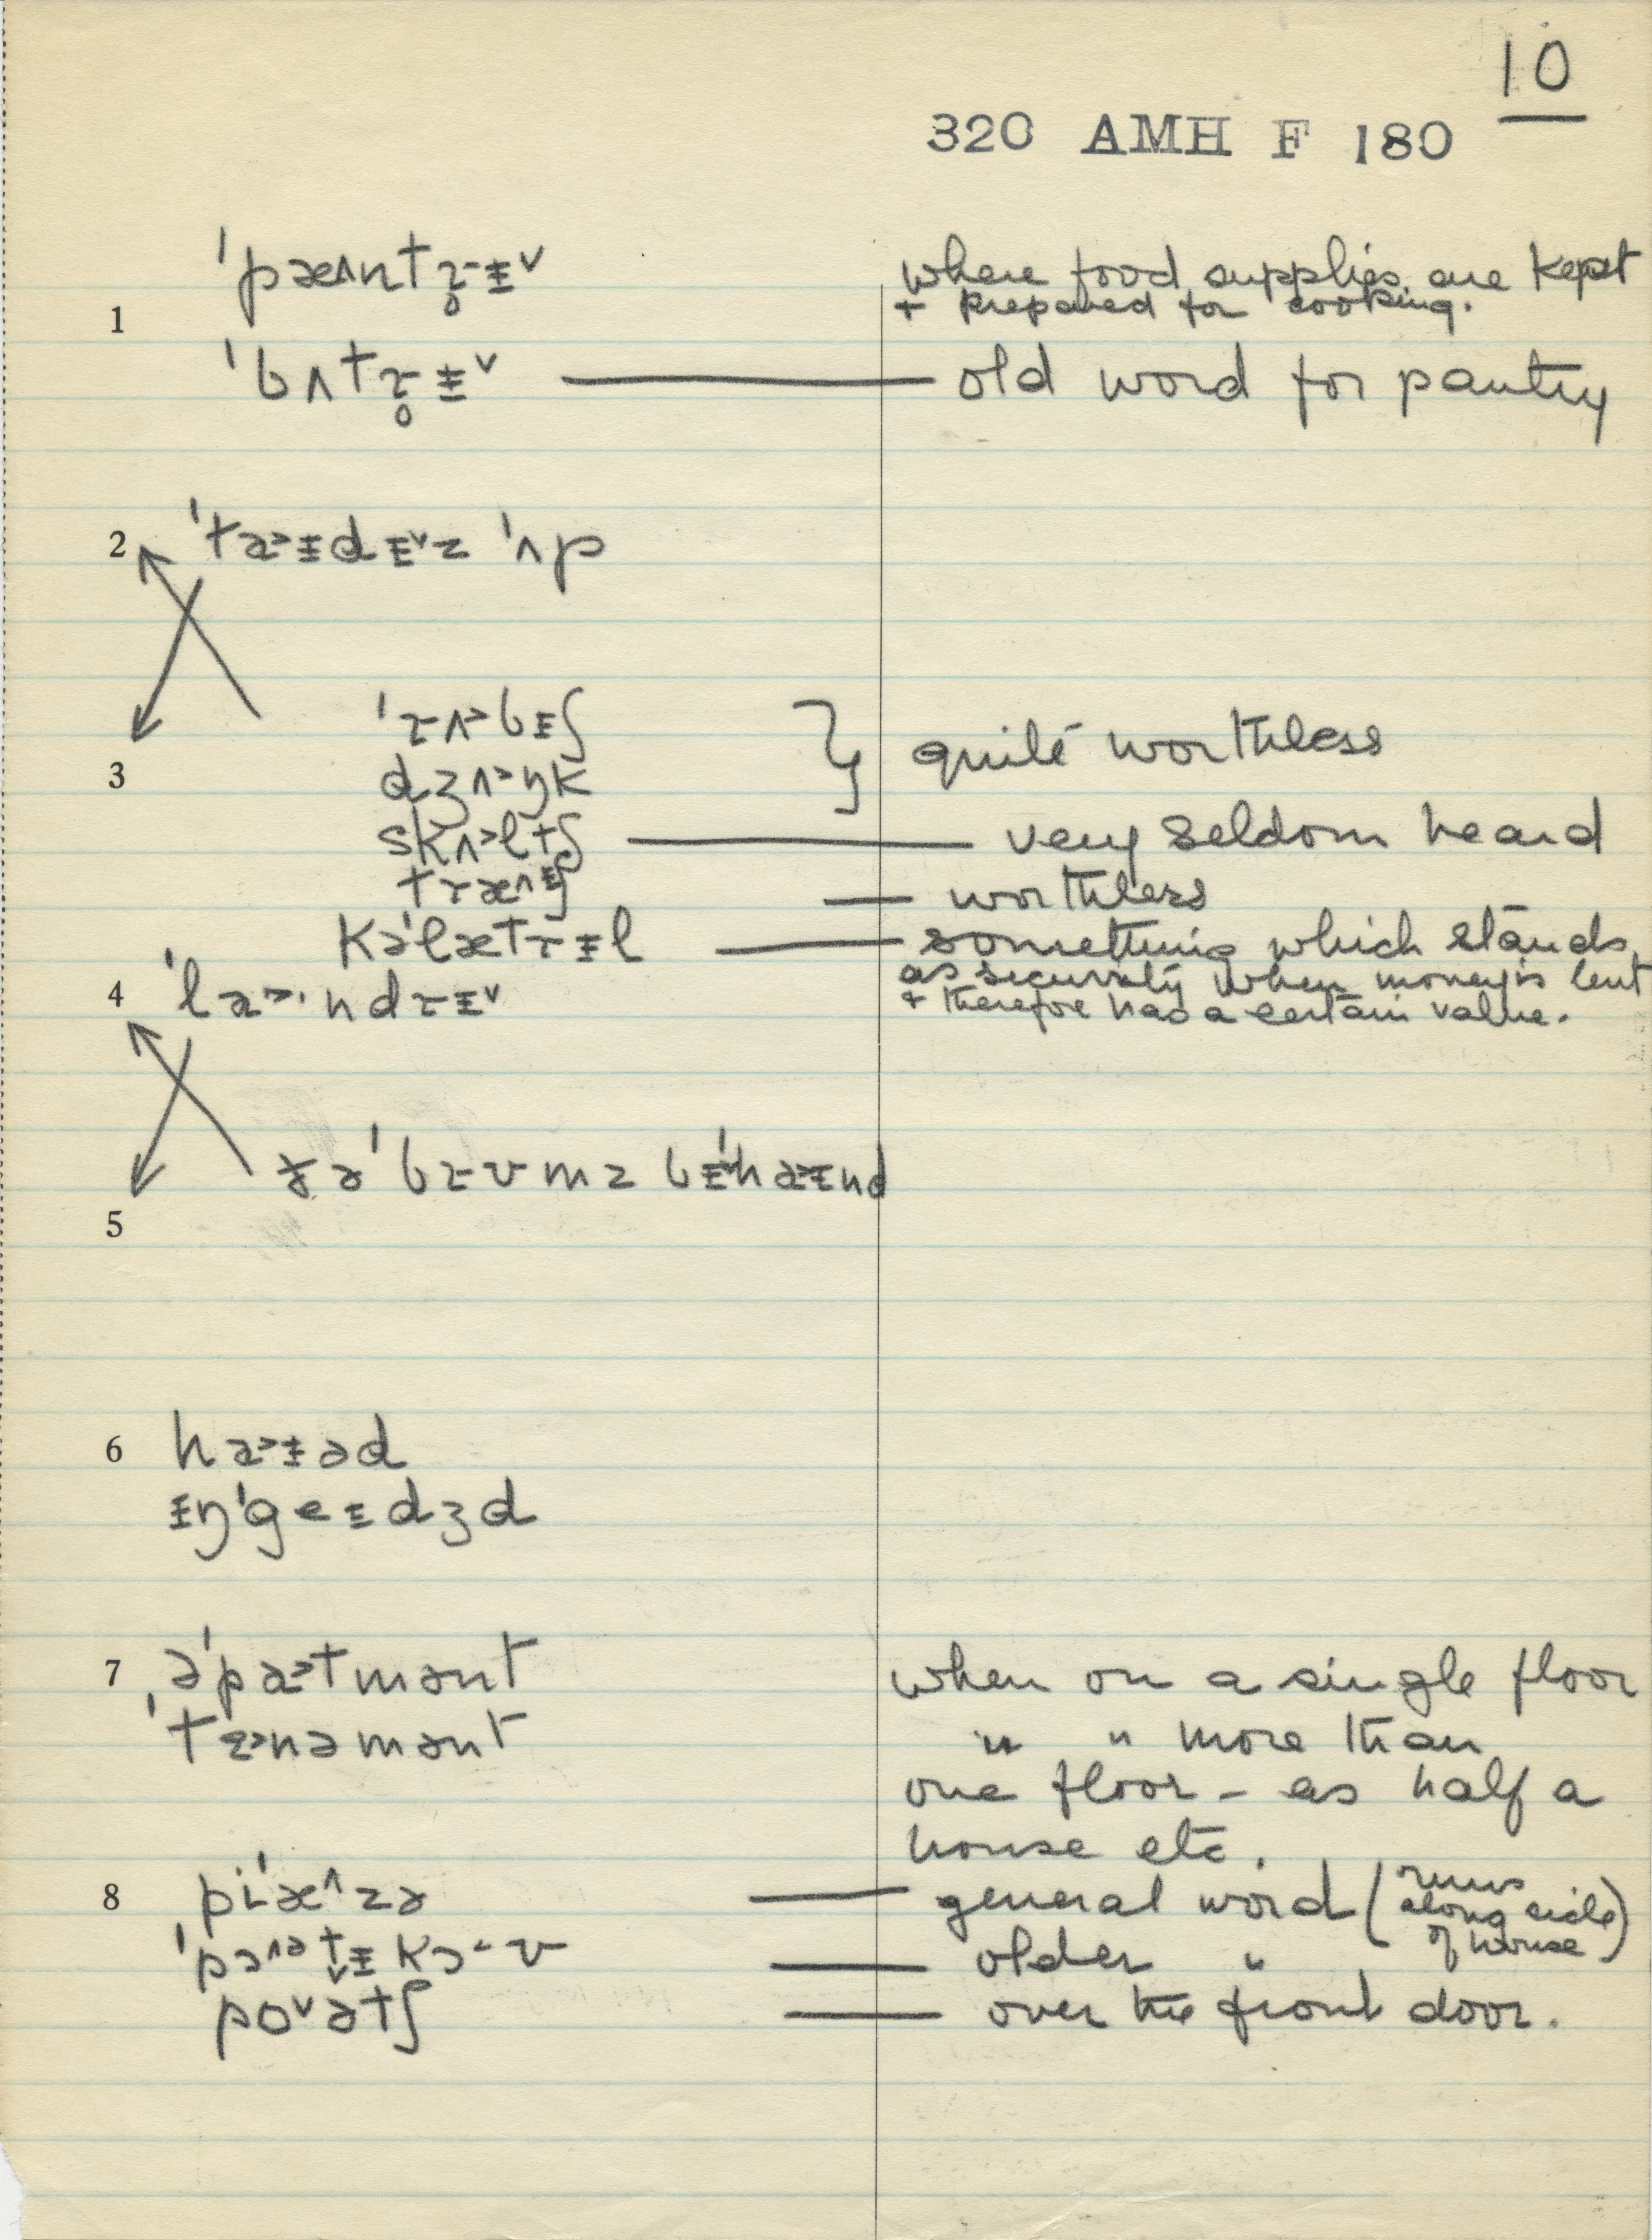 10
320 AMH F 180
ˈpæ˄ntɹ̥ɨ˅ where food supplies are kept
+ prepared for cooking.
1
ˈbʌtɹ̥ɨ˅ — old word for pantry
2 ˈta˃ɨdɨ˅z ˈʌp
ˈɹʌ˃bɨʃ } quite worthless
3 dʒʌ˃ŋk
skʌ˃ltʃ — very seldom heard
tɹæ˄ɨʃ — worthless
kəˈlætɹɨl — something which stands
as security when money is lent
4 ˈla˃·ndɹɨ˅ + therefore has a certain value.
ðəˈbɹʊmz bɨˈha˃ɨnd
5
6 ha˃ɨəd
ɨŋˈgeɨdʒd
7 əˈpa˃tmənt when on a single floor
ˈtɛ˃nəmənt " " more than
one floor – as half a
house etc.
8 piˈæ˄zə — general word (runs along side of house)
ˈpɔ˄ətɨkoʊ — older "
po˅ətʃ — over the front door.